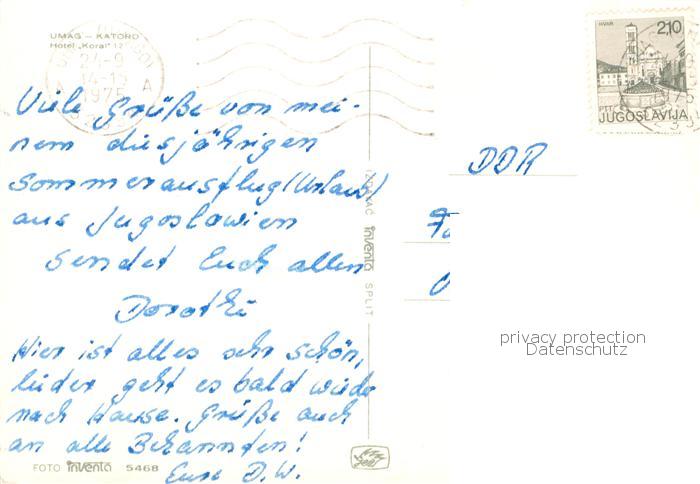 UMAG — KATORO
Hotel „Koral" 12
24-9
14-15
1975
A A
HVAR
2,10
PTT
JUGOSLAVIJA
Viele Grüße von mei-
nem diesjährigen
Sommerausflug (Urlaub)
aus Jugoslawien
sendet Euch allen
Dorothü
Hier ist alles sehr schön,
leider geht es bald wieder
nach Hause. Grüße auch
an alle Bekannten!
Eure D.W.
DDR
IZDAVAČ inventa SPLIT
privacy protection
Datenschutz
FOTO inventa 5468